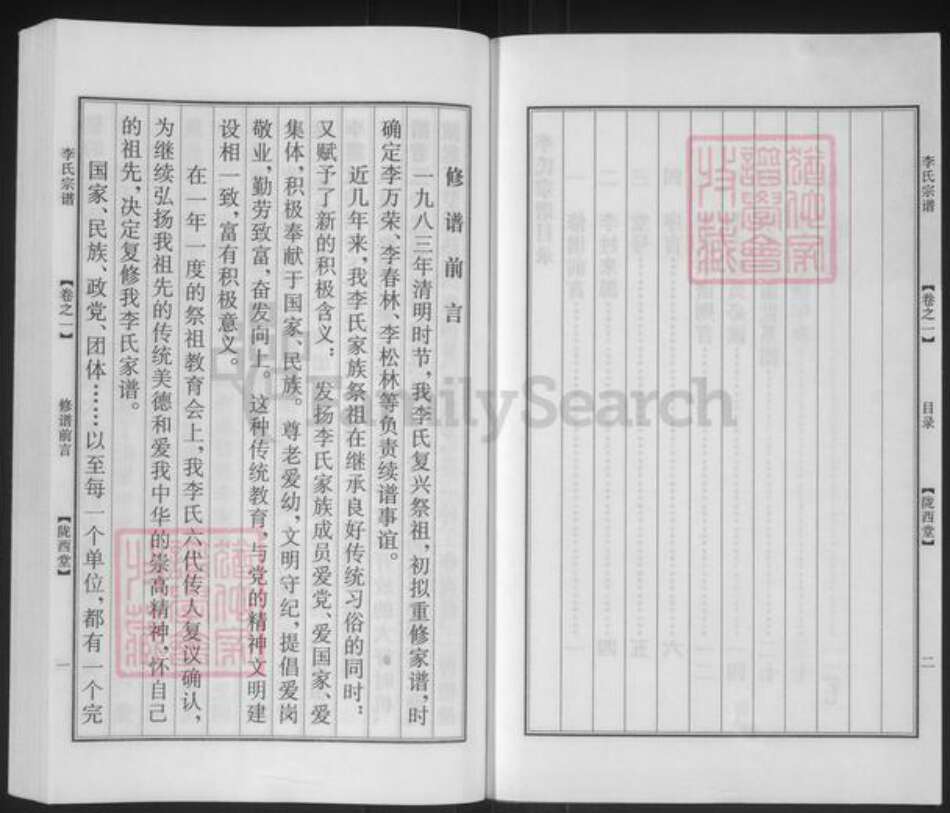 李氏宗谱
【卷之一】
目录
【陇西堂】
二
修谱前言
一九八三年清明时节，我李氏复兴祭祖，初拟重修家谱，时
确定李万荣、李春林、李松林等负责续谱事谊。
近几年来，我李氏家族祭祖在继承良好传统习俗的同时；
又赋予了新的积极含义：发扬李氏家族成员爱党、爱国家、爱
集体，积极奉献于国家、民族。尊老爱幼，文明守纪，提倡爱岗
敬业，勤劳致富，奋发向上。这种传统教育，与党的精神文明建
设相一致，富有积极意义。
在一年一度的祭祖教育会上，我李氏六代传人复议确认，
为继续弘扬我祖先的传统美德和爱我中华的崇高精神，怀自己
的祖先，决定复修我李氏家谱。
国家、民族、政党、团体……以至每一个单位，都有一个完
李氏宗谱
【卷之一】
修谱前言
【陇西堂】
一
FamilySearch